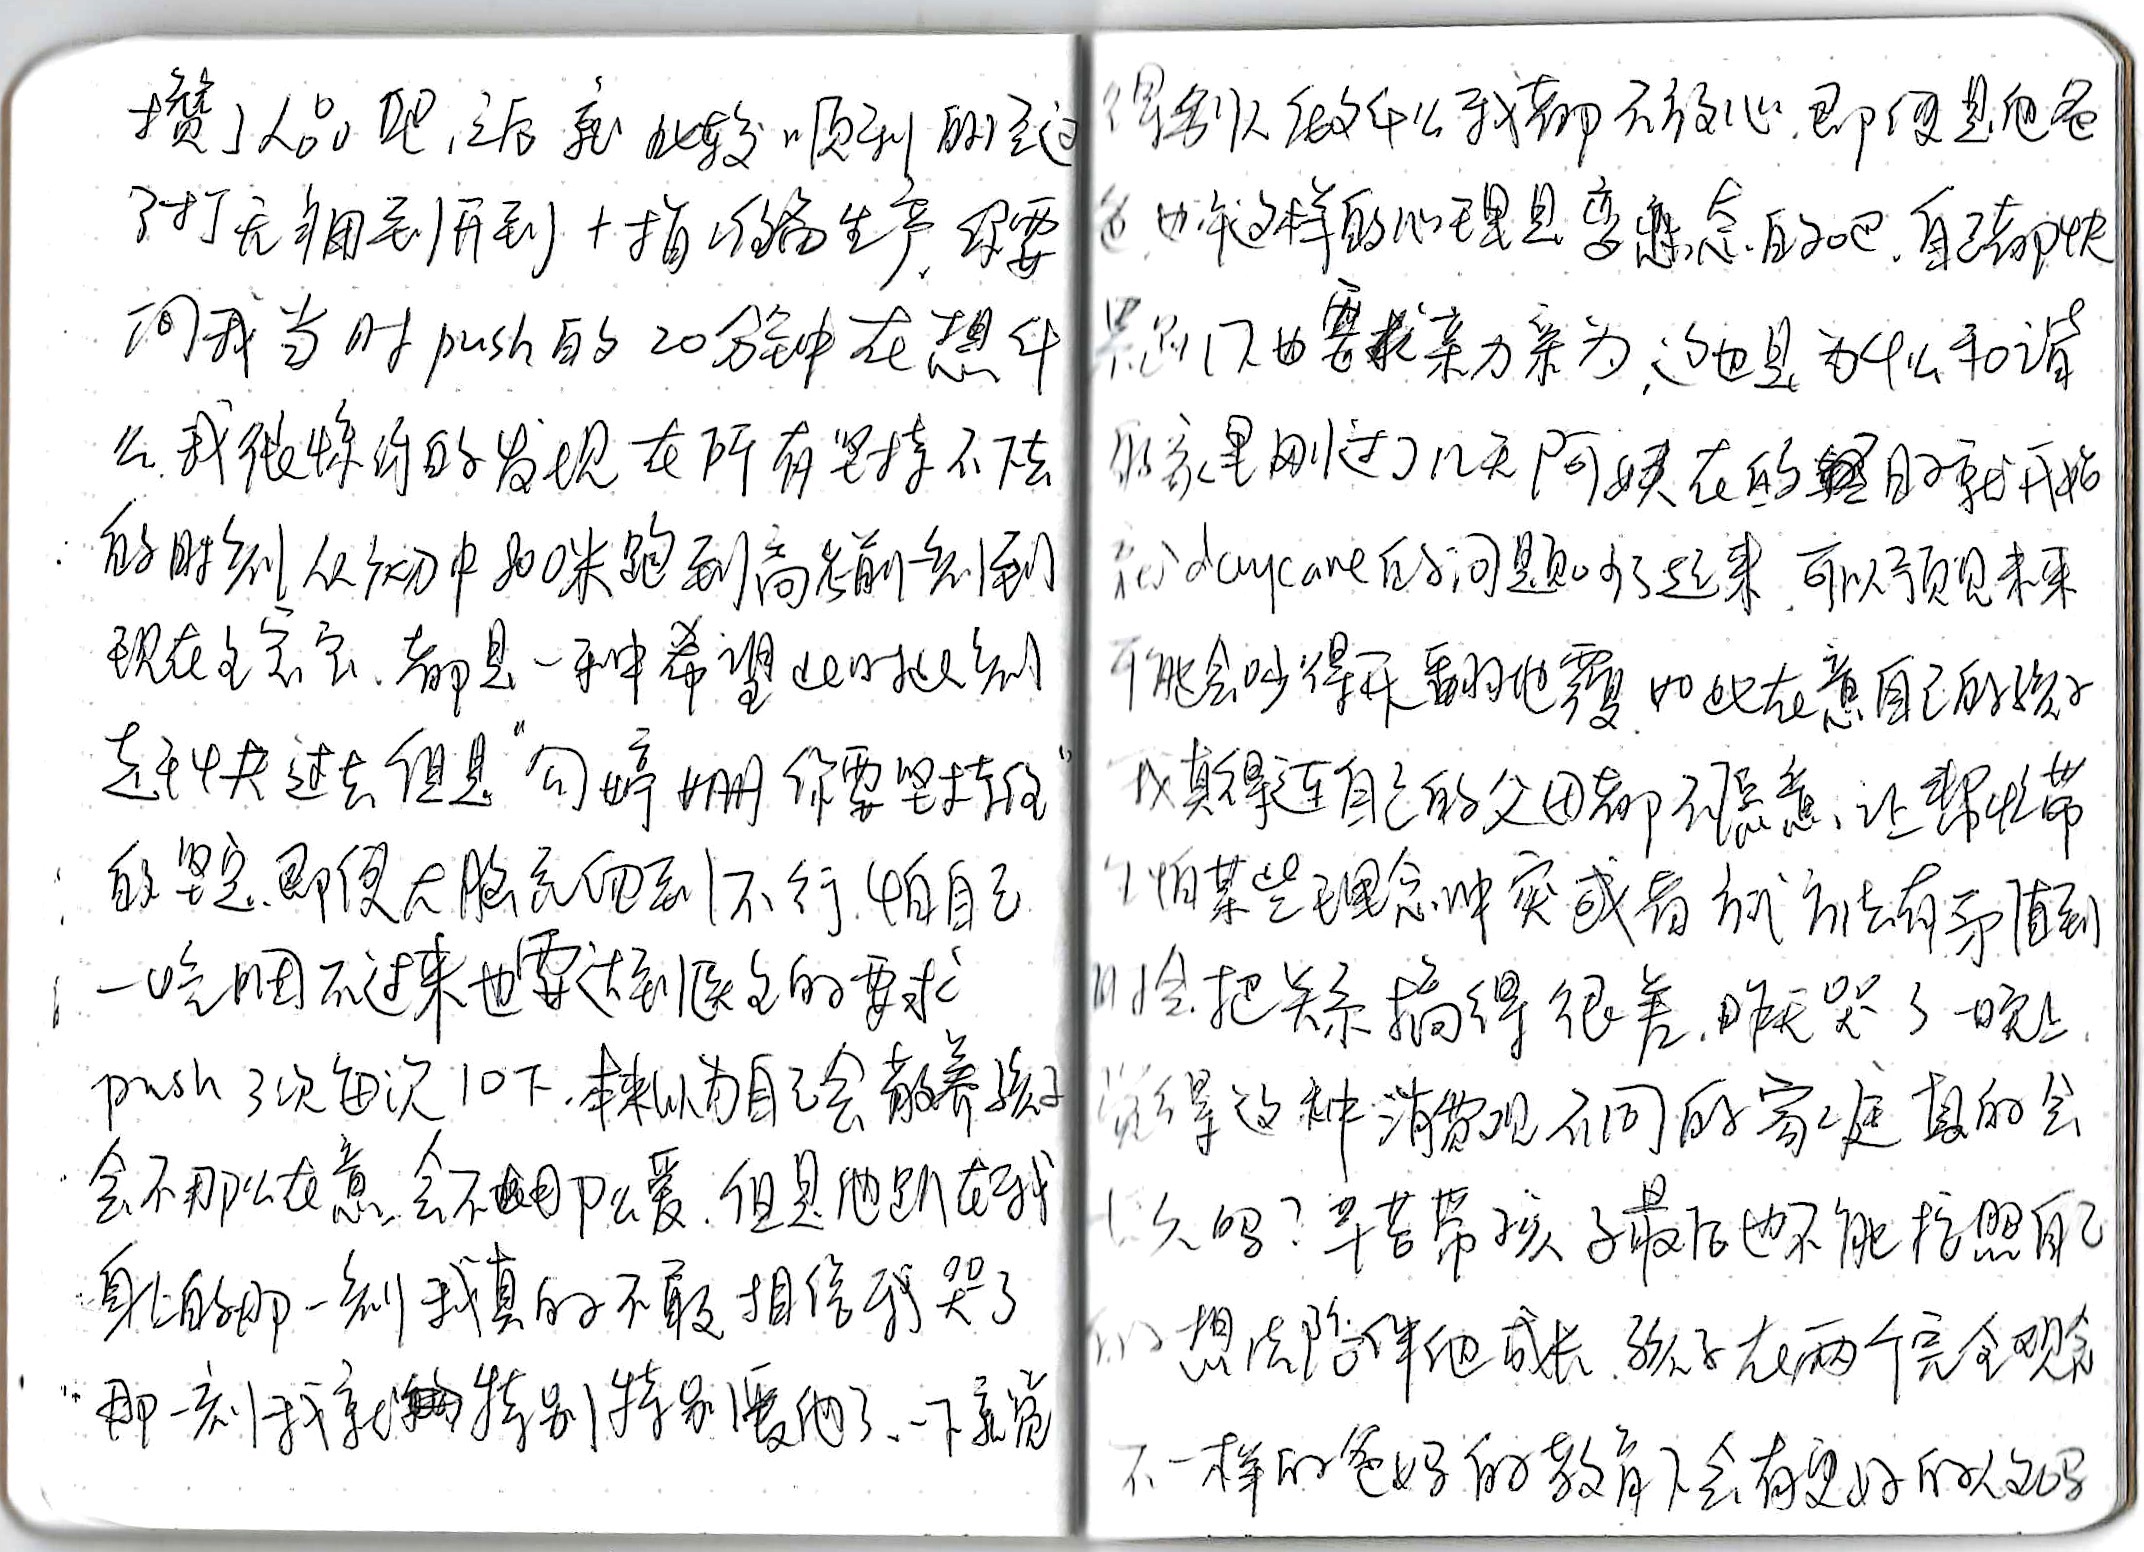 攒了人品吧,之后就比较顺利的经过
了打无痛到开到十指准备生产,你要
问我当时push的20分钟在想什
么,我很惊讶的发现在所有坚持不下去
的时刻从初中800米跑到高考前一刻到
现在生宗宗,都是一种希望此时此刻
赶快过去但是"勾婷姗你要坚持住"
的坚定,即便大脑充血到不行,怕自己
一口气咽不过来也要达到医生的要求
push 3次每次10下.本来以为自己会散养孩子
会不那么在意,会不那么爱.但是他趴在我
身上的那一刻我真的不敢相信我哭了
那一刻我就特别特别爱他了、一下就觉
得别人做什么我都不放心.即便是他爸
爸也许这样的心理是变态的吧.自己都快
累趴下也要求亲力亲为,这也是为什么和谐
的家里刚过了几天阿姨在的日子就开始
daycare的问题吵了起来.可以预见未来
可能会吵得天翻地覆.如此在意自己的孩子
我真得连自己的父母都不愿意、让帮忙带
生怕某些理念冲突或者方式方法有矛盾到
时会把关系搞得很差.昨天哭了一晚上.
觉得这种消费观不同的家庭真的会
久吗?辛苦带孩子最后也不能按照自己
的想法陪伴他成长.孩子在两个完全观念
不一样的爸妈的教育下会有更好的人生吗